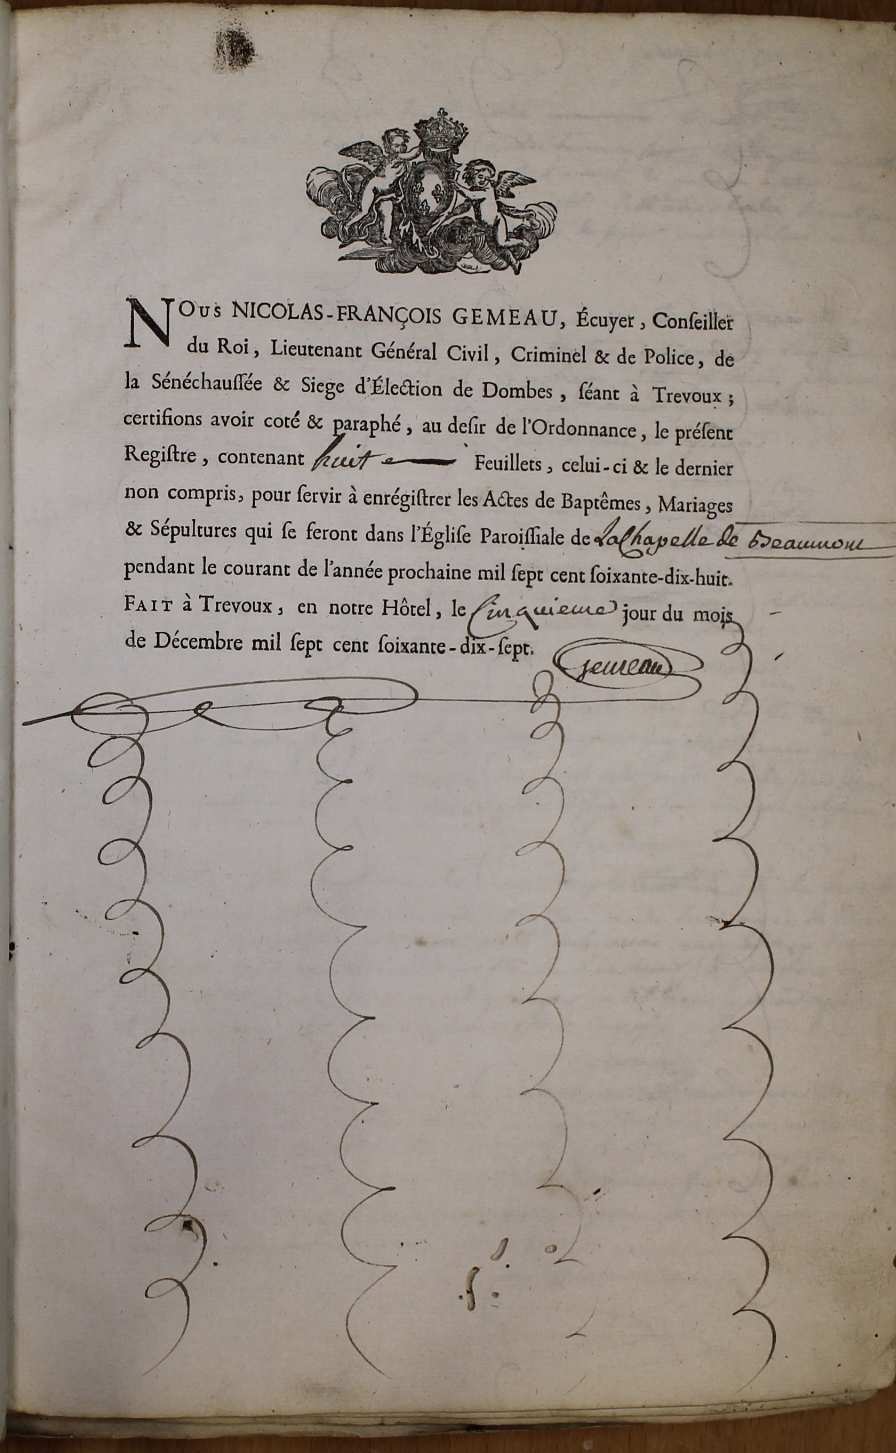 NOUS NICOLAS-FRANÇOIS GEMEAU, Écuyer, Conſeiller
du Roi, Lieutenant Général Civil, Criminel & de Police, de
la Sénéchauſſée & Siege d'Élection de Dombes, ſéant à Trevoux;
certifions avoir coté & paraphé, au deſir de l'Ordonnance, le préſent
Regiſtre, contenant huit Feuillets, celui-ci & le dernier
non compris, pour ſervir à enrégiſtrer les Actes de Baptêmes, Mariages
& Sépultures qui ſe feront dans l'Égliſe Paroiſſiale de La Chapelle de Beaumont
pendant le courant de l'année prochaine mil ſept cent ſoixante-dix-huit.
FAIT à Trevoux, en notre Hôtel, le Cinquieme jour du mois
de Décembre mil ſept cent ſoixante-dix-ſept.
gemeau